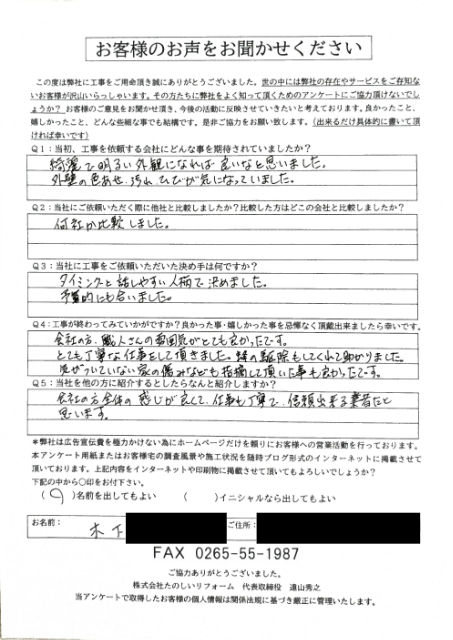 お客様のお声をお聞かせください
この度は弊社に工事をご用命頂き誠にありがとうございました。世の中には弊社の存在やサービスをご存知ないお客様が沢山いらっしゃいます。その方たちに弊社をよく知って頂くためのアンケートにご協力頂けないでしょうか?お客様のご意見をお聞かせ頂き、今後の活動に反映させていきたいと考えております。良かったこと、嬉しかったこと、どんな些細な事でも結構です。是非ご協力をお願い致します。(出来るだけ具体的に書いて頂ければ幸いです)
Q1:当初、工事を依頼する会社にどんな事を期待されていましたか?
綺麗で明るい外観になれば良いなと思いました。
外壁の色あせ、汚れ、ひびが気になっていました。
Q2:当社にご依頼いただく際に他社と比較しましたか?比較した方はどこの会社と比較しましたか?
何社か比較しました。
Q3:当社に工事をご依頼いただいた決め手は何ですか?
タイミングと話しやすい人柄で決めました。
予算的にも合いました。
Q4:工事が終わってみていかがですか?良かった事・嬉しかった事を忌憚なく頂戴出来ましたら幸いです。
会社の方、職人さんの雰囲気がとても良かったです。
とても丁寧な仕事をして頂きました。蜂の駆除もしてくれて助かりました。
気がついていない家の傷みなども指摘して頂いた事も良かったです。
Q5:当社を他の方に紹介するとしたらなんと紹介しますか?
会社の方全体の感じが良くて、仕事も丁寧で、信頼出来る業者だと
思います。
*弊社は広告宣伝費を極力かけない為にホームページだけを頼りにお客様への営業活動を行っております。
本アンケート用紙またはお客様宅の調査風景や施工状況を随時ブログ形式のインターネットに掲載させて頂いております。上記内容をインターネットや印刷物に掲載させて頂いてもよろしいでしょうか?
下記の中から○印をお付下さい。
(○)名前を出してもよい ( )イニシャルなら出してもよい
お名前: 木下 ご住所:
FAX 0265-55-1987
ご協力ありがとうございました。
株式会社たのしいリフォーム 代表取締役 遠山秀之
当アンケートで取得したお客様の個人情報は関係法規に基づき厳正に管理いたします。